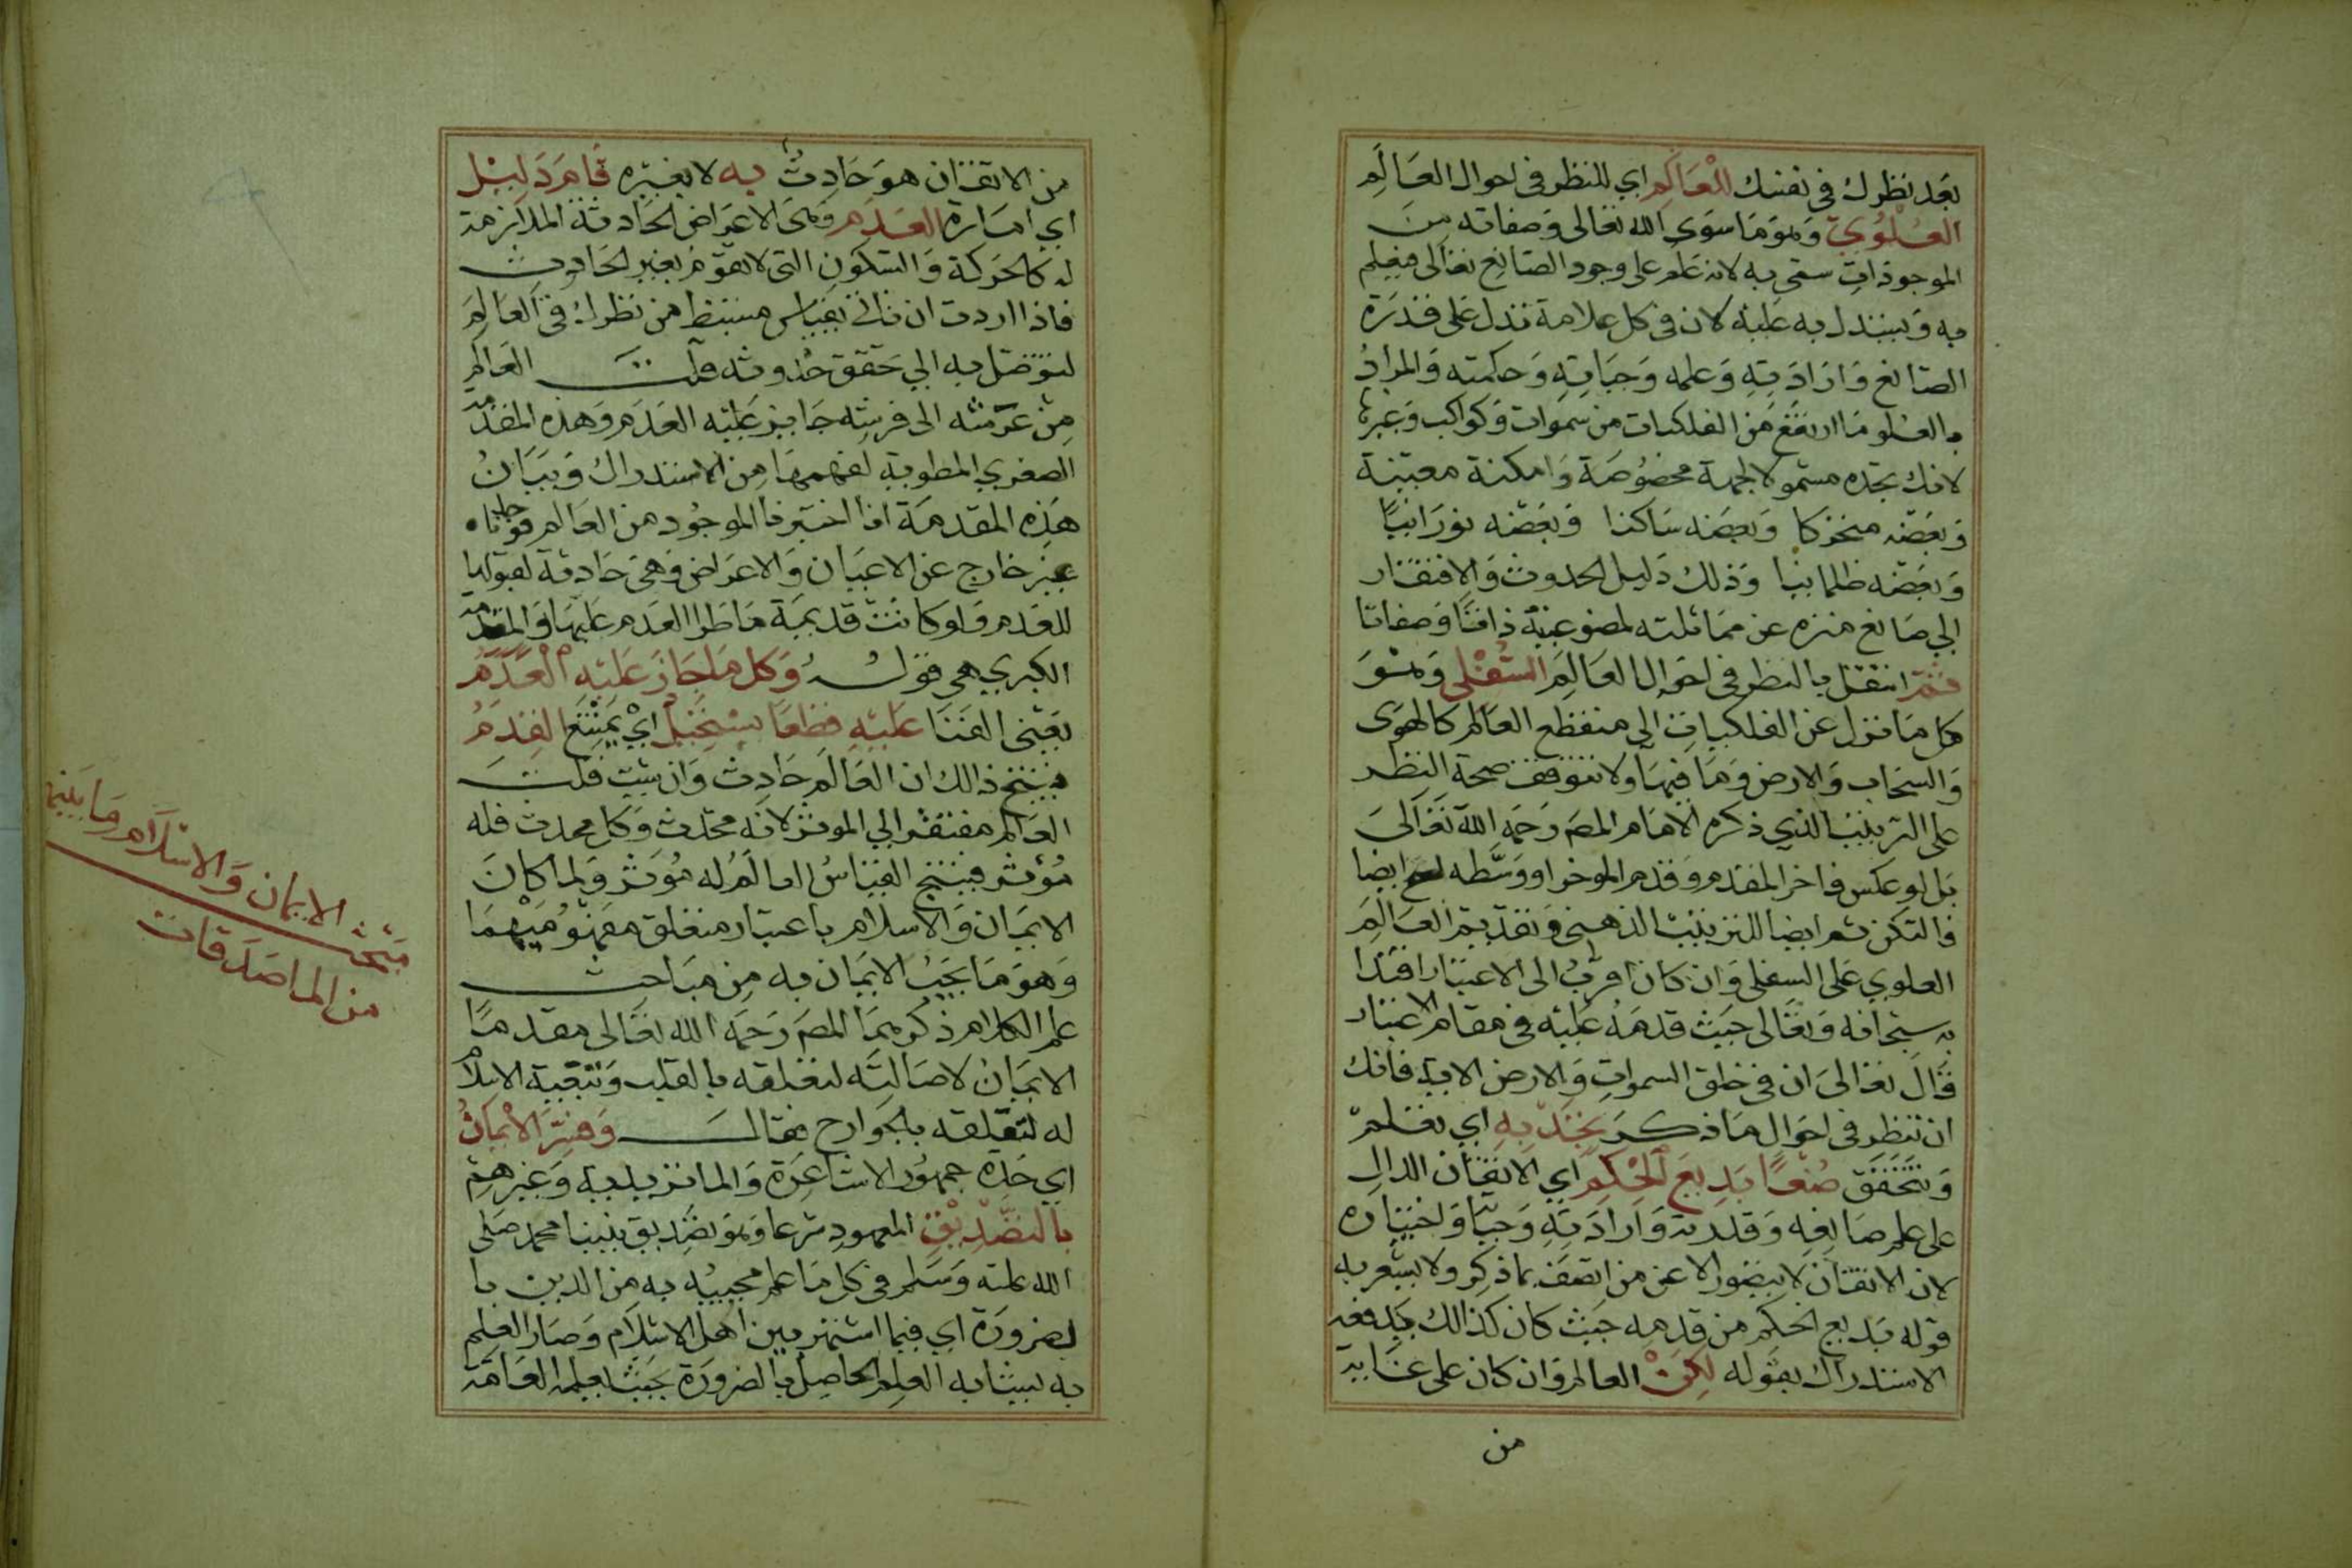 بعد نظرك في نفسك للعالم اي للنظر في احوال العالم
العلوي وهو ما سوى الله تعالى وصفاته من
الموجودات سمى به لانه علم على وجود الصانع تعالى فيعلم
به ويستدل به عليه لان في كل علامة تدل على قدرة
الصانع وارادته وعلمه وحياته وحكمته والمراد
بالعلو ما ارتفع من الفلكيات من سموات وكواكب وغيرها
لانك تجده مشمولا لجهة مخصوصة وامكنة معينة
وبعضه متحركا وبعضه ساكنا وبعضه نورانيا
وبعضه ظلمانيا وذلك دليل الحدوث والافتقار
الي صانع منزه عن مماثلته لمصنوعيه ذاتا وصفاتا
ثم انتقل بالنظر في احوال العالم السفلي وهو
كل ما نزل عن الفلكيات الى منقطع العالم كالهوى
والسحاب والارض وما فيها ولا تتوقف صحة النظر
على الترتيب الذي ذكره الامام المصـ رحمه الله تعالى
بل لو عكس فاخر المقدم وقدم الموخر او وسطه لصح ايضا
فالتكن ثم ايضا للترتيب الذهني وتقديم العالم
العلوي على السفلي وان كان اقرب الى الاعتبار اقتدا
به سبحانه وتعالى حيث قدمه عليه في مقام الاعتبار
قال تعالى ان في خلق السموات والارض الاية فانك
ان تنظر في احوال ما ذكر تجد به اي تعلم
وتتحقق صنعا بديع الحكم اي الاتقان الدال
على علم صانعه وقدرته وارادته وحيا واختياره
لان الاتقان لا يتصور الا عن من اتصف بما ذكر ولا يشعر به
قوله بديع الحكم من قدمه حيث كان كذالك بدفعه
الاستدراك بقوله لكن العالم وان كان على غاية
من
من الاتقان هو حادث به لا بغيره قام دليل
اي امارة العدم وهى الاعراض الحادثة الملازمة
له كالحركة والسكون التي لا تقوم بغير الحادث
فاذا اردت ان تاتي بقياس مستنبط من نظرك في العالم
لتوصل به الي تحقق حدوثه قلت العالم
من عرشه الى فرشه جايز عليه العدم وهذه المقدمة
الصغري المطوية لفهمها من الاستدراك وبيان
هذه المقدمة اذا اختبرنا الموجود من العالم فوجدناه
غير خارج عن الاعيان والاعراض وهي حادثة لقبولها
للعدم ولو كانت قديمة ما طرا العدم عليها والمقدمة
الكبري هي قوله وكل ما جاز عليه العدم
يعني الفنا عليه قطعا يستحيل اي يمتنع القدم
فينتج ذالك ان العالم حادث وان شيت قلت
العالم مفتقر الي الموثر لانه محدث وكل محدث فله
موثر فينتج القياس العالم له موثر ولما كان
الايمان والاسلام باعتبار متعلق مفهوميهما
وهو ما يجب الايمان به من مباحث
علم الكلام ذكرهما المصـ رحمه الله تعالى مقدما
الايمان لاصالته لتعلقه بالقلب وتبعية الاسلام
له لتعلقه بالجوارح فقال وفسر الايمان
اي حده جمهور الاشاعرة والماتريدية وغيرهم
بالتصديق المعهود شرعا وهو تصديق نبينا محمد صلى
الله عليه وسلم في كل ما علم مجييه به من الدين با
لضرورة اي فيما اشتهر بين اهل الاسلام وصار العلم
به يشابه العلم الحاصل بالضرورة بحيث يعلمه العامة
مبحث الايمان والاسلام وما بينهما
من الماصدقات